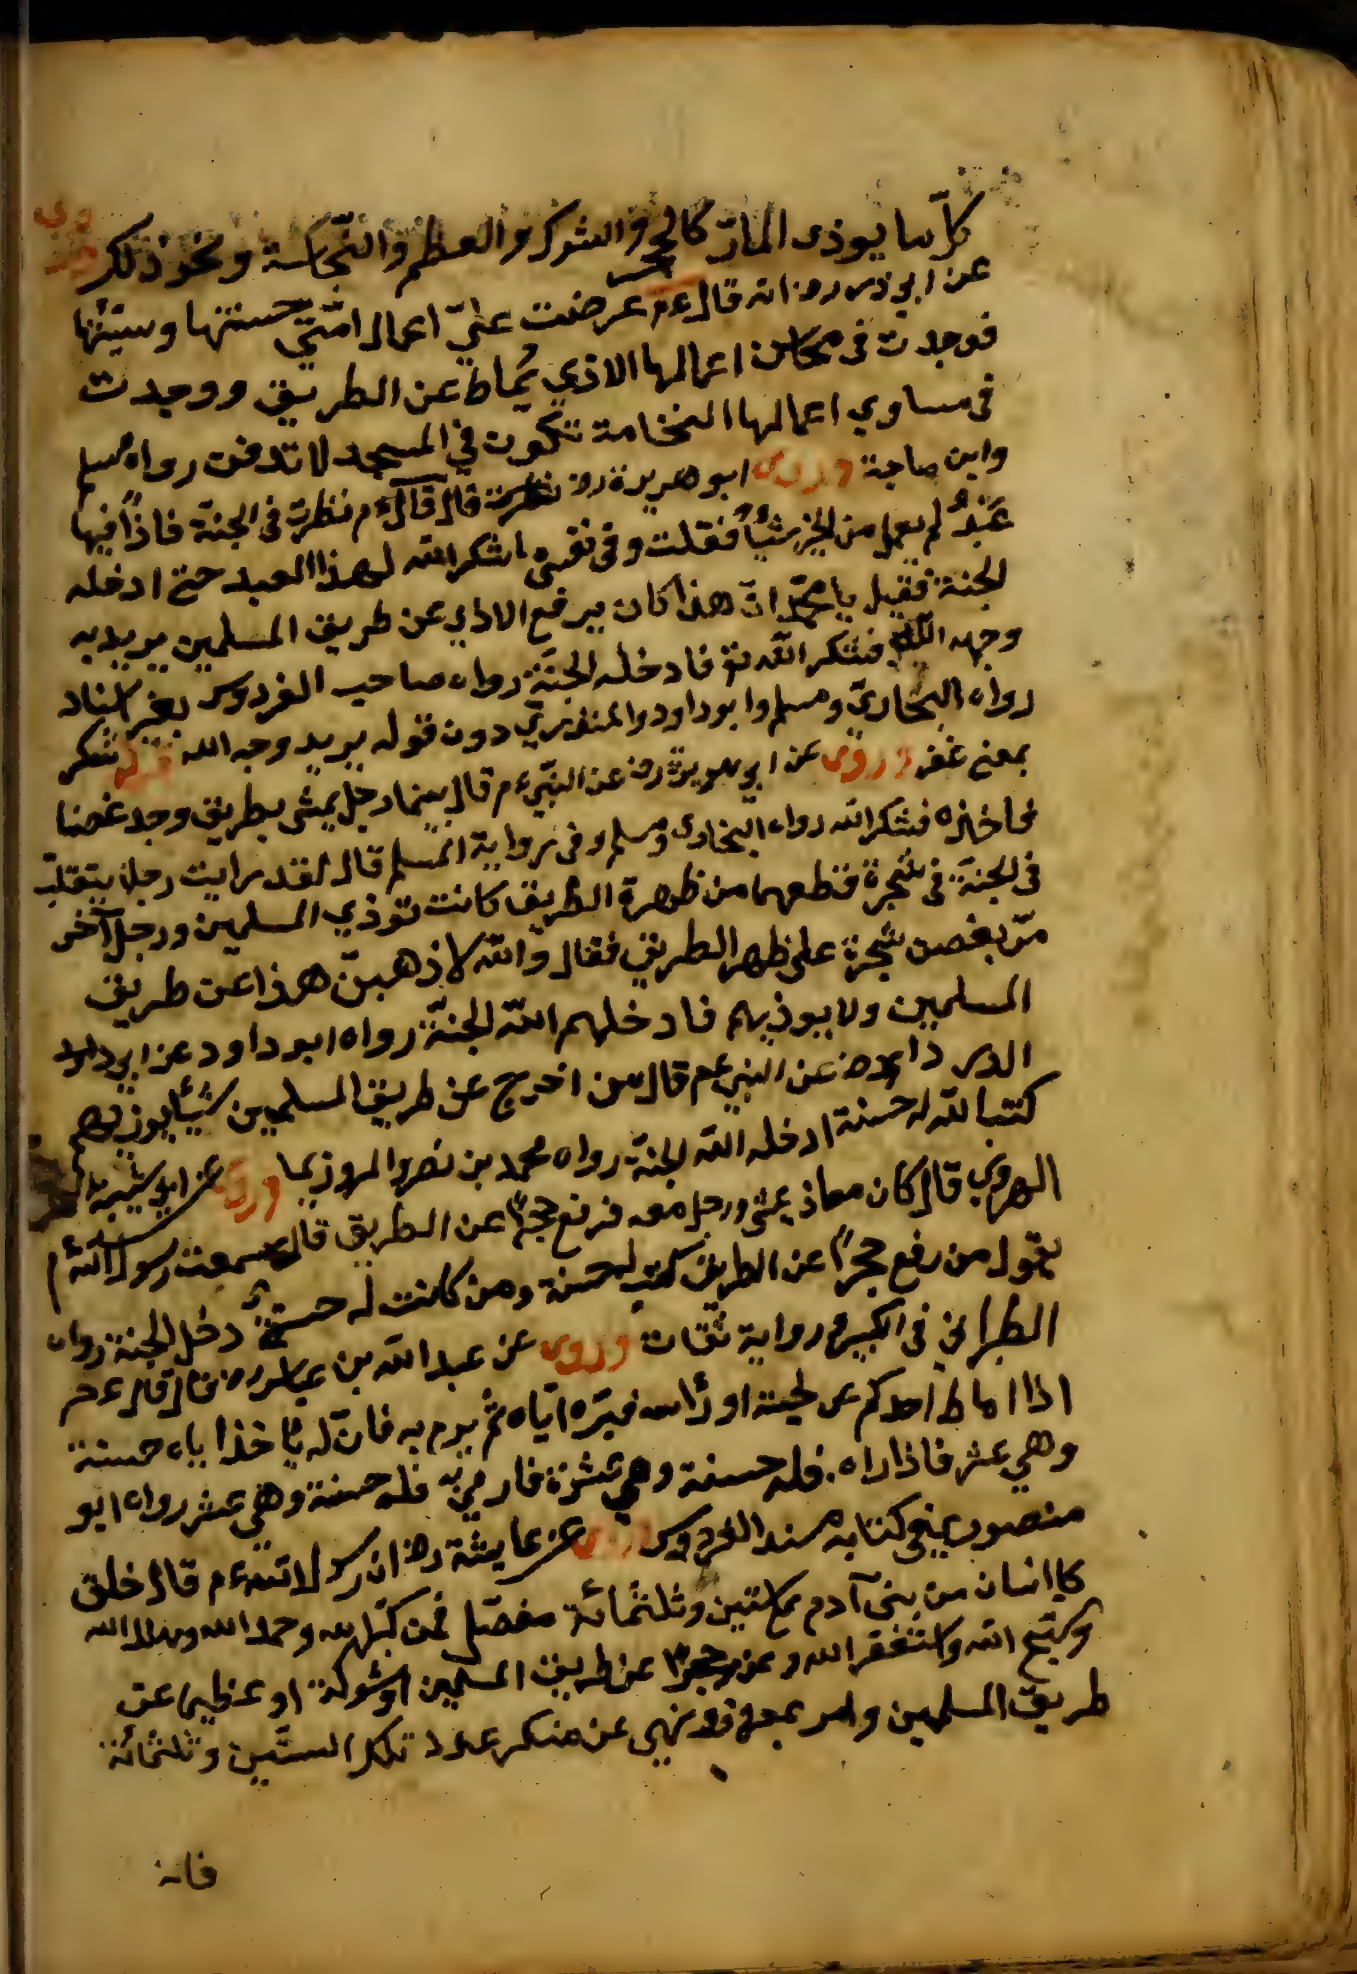 كل ما يوذى المار كالحجر والشوك والعظم والنجاسة ونحو ذلك وروى
عن ابي ذر رض انه قال ءم عرضت علي اعمال امتي حسنتها وسيئتها
فوجدت فى محاسن اعمالها الاذي يماط عن الطريق ووجدت
فى مساوي اعمالها النخامة تكون في المسجد لا تدفن رواه مسلم
وابن ماجة وروى ابو هريرة رض قال قال ءم نظرت فى الجنة فاذا فيها
عبد لم يعمل من الخير شيأ فقلت وفى نفسي اشكر الله لهذا العبد حتى ادخله
الجنة فقيل يا محمد ان هذا كان يرفع الاذي عن طريق المسلمين يريد به
وجه الله فشكر الله تع فادخله الجنة رواه صاحب الفردوس بغير اسناد
رواه البخاري ومسلم وابو داود والمنذري دون قوله يريد وجه الله قوله شكر
بمعنى غفر وروى عن ابي هريرة رض عن النبي ءم قال بينما رجل يمشى بطريق وجد غصنا
فاخذه فشكر الله رواه البخارى ومسلم وفى رواية المسلم قال لقد رايت رجلا يتقلب
فى الجنة فى شجرة قطعها من ظهرة الطريق كانت توذي المسلمين ورجل آخر
مر بغصن شجرة على ظهر الطريق فقال والله لاذهبن هذا عن طريق
المسلمين ولا يوذيهم فادخلهم الله الجنة رواه ابو داود عن ابي
الدرداء رض عن النبي عم قال من اخرج عن طريق المسلمين شيأ يوذيهم
كتب الله له حسنة ادخله الله الجنة رواه محمد بن نصر المروذي وروى عن ابي شيبة
الهروي قال كان معاذ يمشى ورجل معه فرفع حجرا عن الطريق قال سمعت رسول الله ءم
يقول من رفع حجرا عن الطريق كتب له حسنة ومن كانت له حسنة دخل الجنة رواه
الطبراني فى الكبير رواية ثقات وروى عن عبد الله بن عباس رض قال قال عم
اذا اماط احدكم عن لحيته او رأسه فيره اياه ثم يرم به فان له باخذ اياه حسنة
وهي عشر فاذا راه فله حسنة وهي عشرة فاذ رمي به فله حسنة وهي عشر رواه ابو
منصور في كتابه مسند الفردوس وروى عن عايشة رض ان رسول الله ءم قال خلق
كل انسان من بنى آدم على ستين وثلثمائة مفصل فمن كبر الله وحمد الله وهلل الله
وسبح الله واستغفر الله وعزل حجرا عن طريق المسلمين او شوكة او عظيما عن
طريق المسلمين وامر بمعروف ونهي عن منكر عدد تلك الستين وثلثمائة
فانه